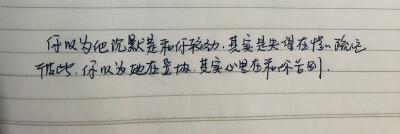 你以为他沉默是和你较劲，其实是失望在慢慢疏远
彼此，你以为她在妥协，其实心里在和你告别．